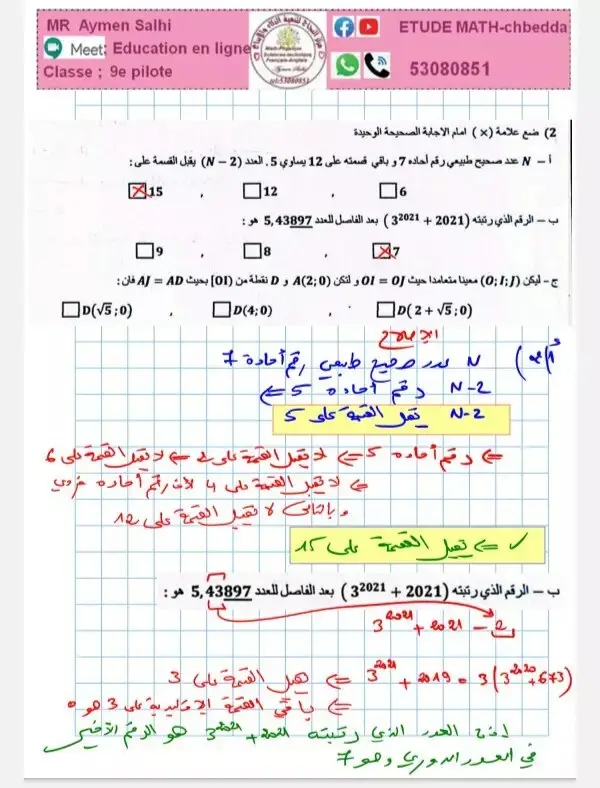 MR Aymen Salhi
Meet: Education en ligne
Classe ; 9e pilote
ETUDE MATH-chbedda
53080851
2) ضع علامة (×) امام الاجابة الصحيحة الوحيدة
أ – N عدد صحيح طبيعي رقم أحاده 7 و باقي قسمته على 12 يساوي 5. العدد (N − 2) يقبل القسمة على :
☒15 , ☐12 , ☐6
ب – الرقم الذي رتبته (3²⁰²¹ + 2021) بعد الفاصل للعدد 5,43897 هو :
☐9 , ☐8 , ☒7
ج – ليكن (O; I; J) معينا متعامدا حيث OI = OJ و لتكن A(2; 0) و D نقطة من [OI) بحيث AJ = AD فان :
☐D(√5 ; 0) , ☐D(4; 0) , ☐D( 2 + √5 ; 0)
الإصلاح
N عدد صحيح طبيعي رقم أحاده 7
N-2 رقم أحاده 5 ⇐
N-2 يقبل القسمة على 5
⇐ رقم أحاده 5 ⇐ لا يقبل القسمة على 2 ⇐ لا يقبل القسمة على 6
⇐ لا يقبل القسمة على 4 لأن رقم أحاده فردي
و بالتالي لا يقبل القسمة على 12
✓ ⇐ يقبل القسمة على 15
ب – الرقم الذي رتبته (3²⁰²¹ + 2021) بعد الفاصل للعدد 5,43897 هو :
3²⁰²¹ + 2021 − 2
3²⁰²¹ + 2019 = 3(3²⁰²⁰ + 673) ⇒ يقبل القسمة على 3
⇒ باقي القسمة الإقليدية على 3 هو 0
إذن العدد الذي رتبته 3²⁰²¹ + 2021 هو الرقم الأخير
في العدد الدوري وهو 7